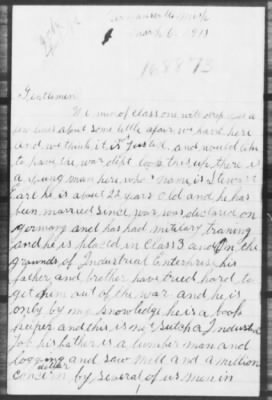 March 6, 1918
168873
Gentlemen
We men of class one will drop you a
few lines about some little afair we have here
and we think it is Justed. and would like
to have the war dept look this up, there is
a young man here who's name is Stewart
Earl he is about 22 years old and he has
been married since war was declared on
germany and has had military training
and he is placed in Class 3 and On the
grounds of Industrial Enterprise his
father and brother have tried hard to
get him out of the war and he is
only by my knowledge he is a book
keeper and this is no such a Industrial
Job his father is a lumber man and
logging and saw mill and a million
dollar
concern by several of us men in